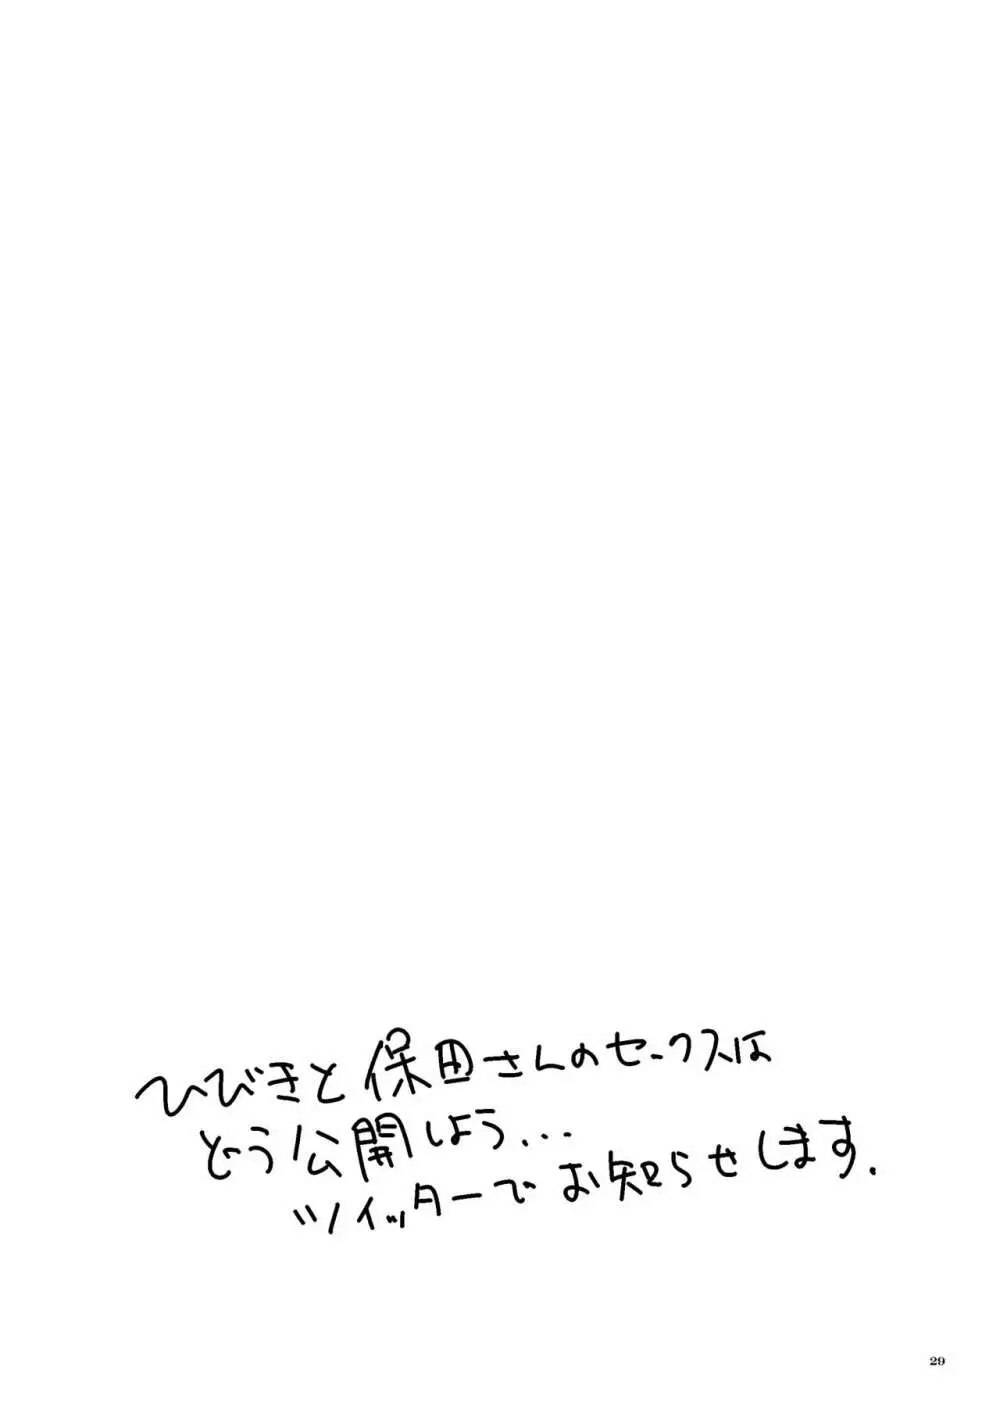 ひびきと保田さんのセックスは
どう公開しよう...
ツイッターでお知らせします.
29